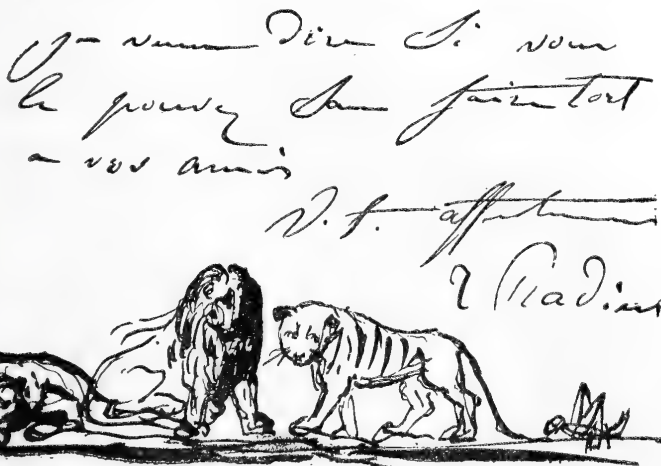 je veux dire si vous
le pouvez sans faire tort
a vos amis
V. t. affectueux
J Pradier